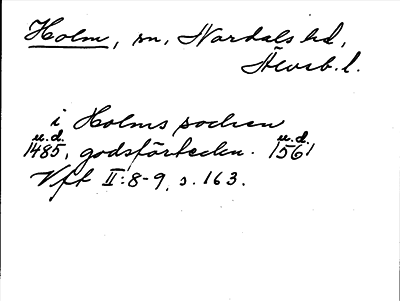 Holm, sn, Nordals hd,
Älvsb. l.
i Holms socken
u.d. u.d.
1485, godsförteckn. 1561
Vft II:8-9, s. 163.